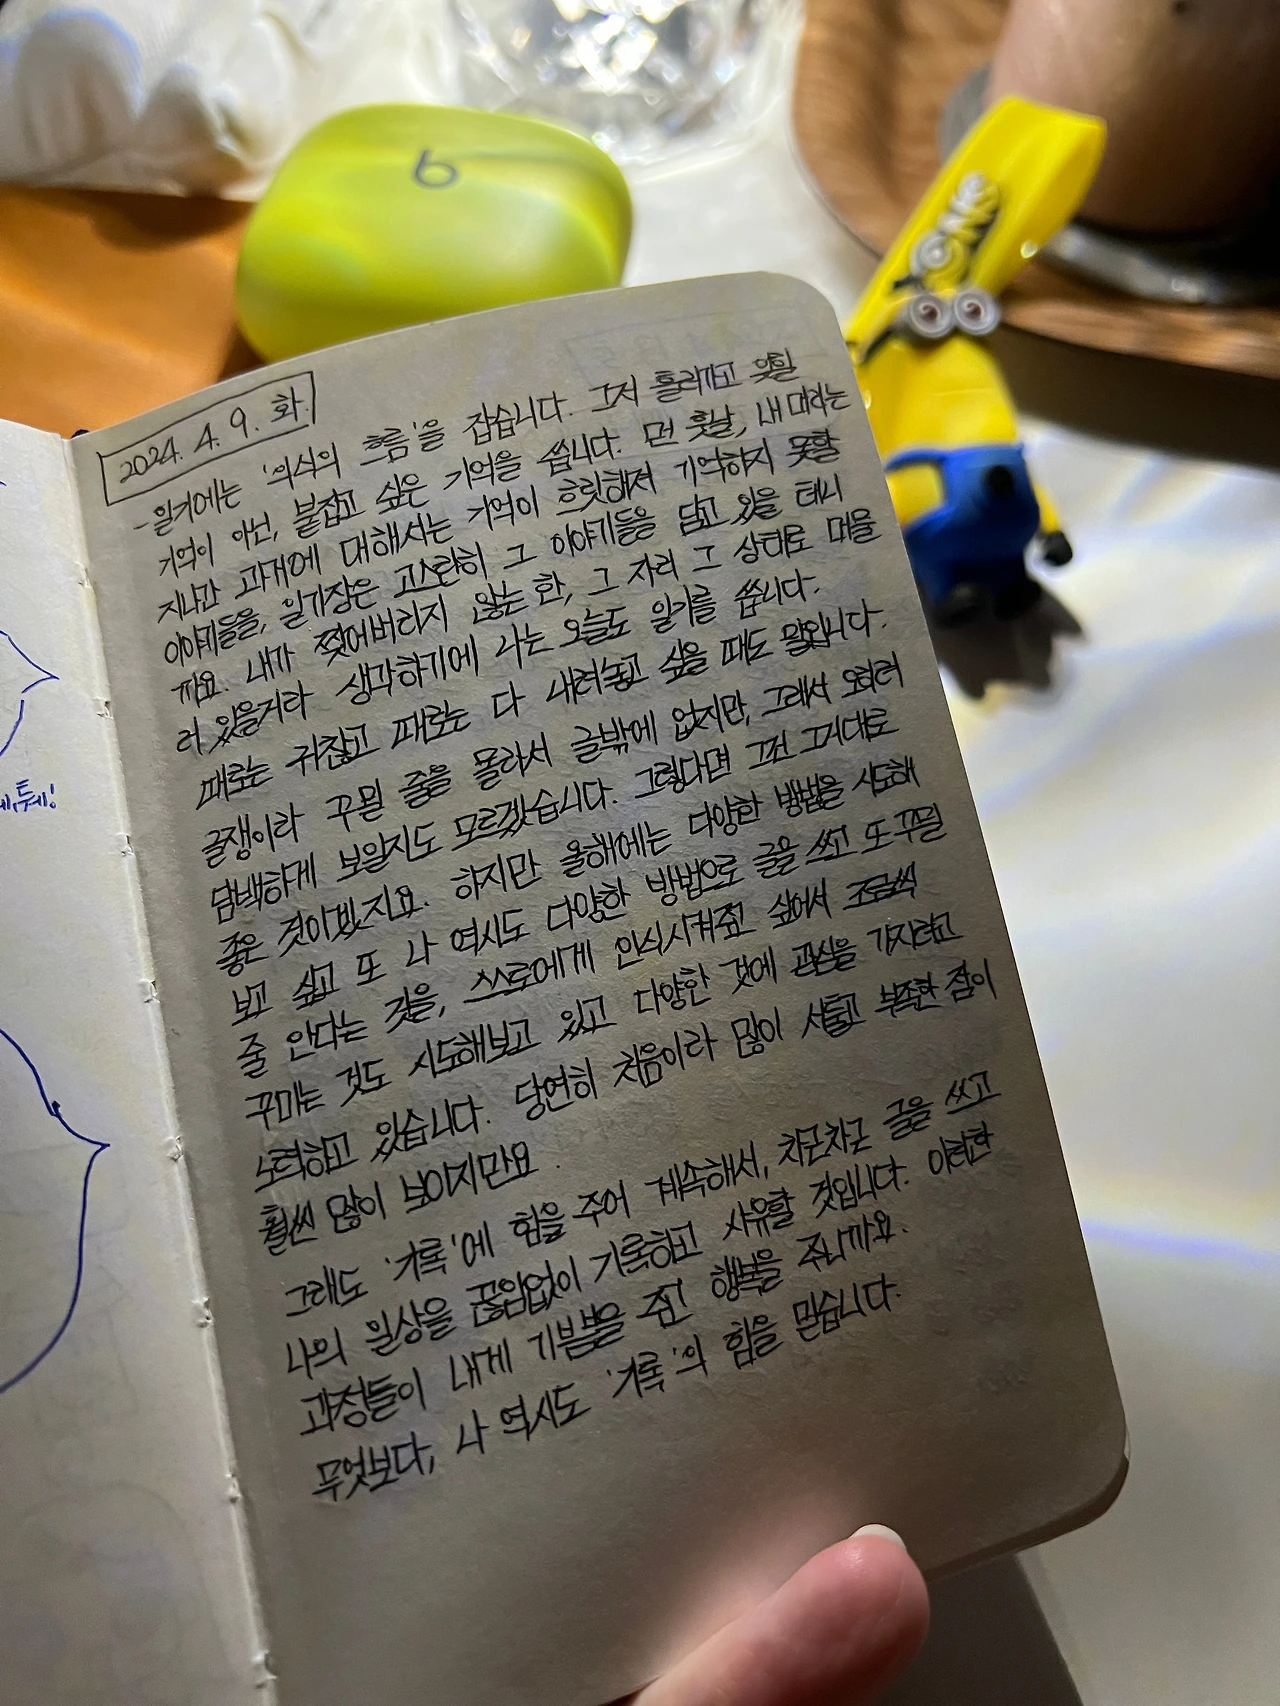 2024. 4. 9. 화.
- 일기에는 '의식의 흐름'을 잡습니다. 그저 흘러가고 잊힐
기억이 아닌, 붙잡고 싶은 기억을 씁니다. 먼 훗날, 내 머리는
지나간 과거에 대해서는 기억이 흐릿해져 기억하지 못할
이야기들을, 일기장은 고스란히 그 이야기들을 담고 있을 테니
까요. 내가 찢어버리지 않는 한, 그 자리 그 상태로 머물
러 있을거라 생각하기에 나는 오늘도 일기를 씁니다.
때로는 귀찮고 때로는 다 내려놓고 싶을 때도 많습니다.
글쟁이라 꾸밀 줄을 몰라서 글밖에 없지만, 그래서 오히려
담백하게 보일지도 모르겠습니다. 그렇다면 그건 그거대로
좋은 것이겠지요. 하지만 올해에는 다양한 방법을 시도해
보고 싶고 또 나 역시도 다양한 방법으로 글을 쓰고 또 꾸밀
줄 안다는 것을, 스스로에게 인식시켜주고 싶어서 조금씩
꾸미는 것도 시도해보고 있고 다양한 것에 관심을 가지려고
노력하고 있습니다. 당연히 처음이라 많이 서툴고 부족한 점이
훨씬 많이 보이지만요.
그래도 '기록'에 힘을 주어 계속해서, 차근차근 글을 쓰고
나의 일상을 끊임없이 기록하고 사유할 것입니다. 이러한
과정들이 내게 기쁨을 주고 행복을 주니까요.
무엇보다, 나 역시도 '기록'의 힘을 믿습니다.
b